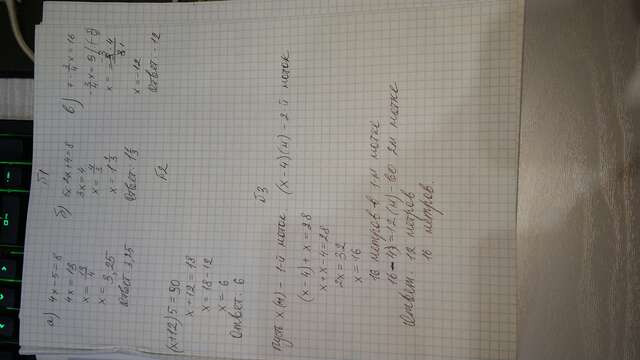 №1
а) 4x-5=8
4x=13
x = 13/4
x = 3,25
Ответ: 3,25
б) 5x-2x+4=8
3x=4
x = 4/3
x = 1 1/3
Ответ: 1 1/3
в) 7 - 3/4 x = 16
- 3/4 x = 9
x =
x = -12
Ответ: -12
№2
(x+12)5=90
x+12=18
x = 18-12
x = 6
Ответ: 6
№3
Пусть x(м) - 1-й моток. (x-4)(м) - 2-й моток
(x-4)+x=28
x+x-4=28
2x=32
x=16
16 метров в 1-м мотке
16-4)=12(м)-во 2м мотке
Ответ: 12 метров
16 метров.